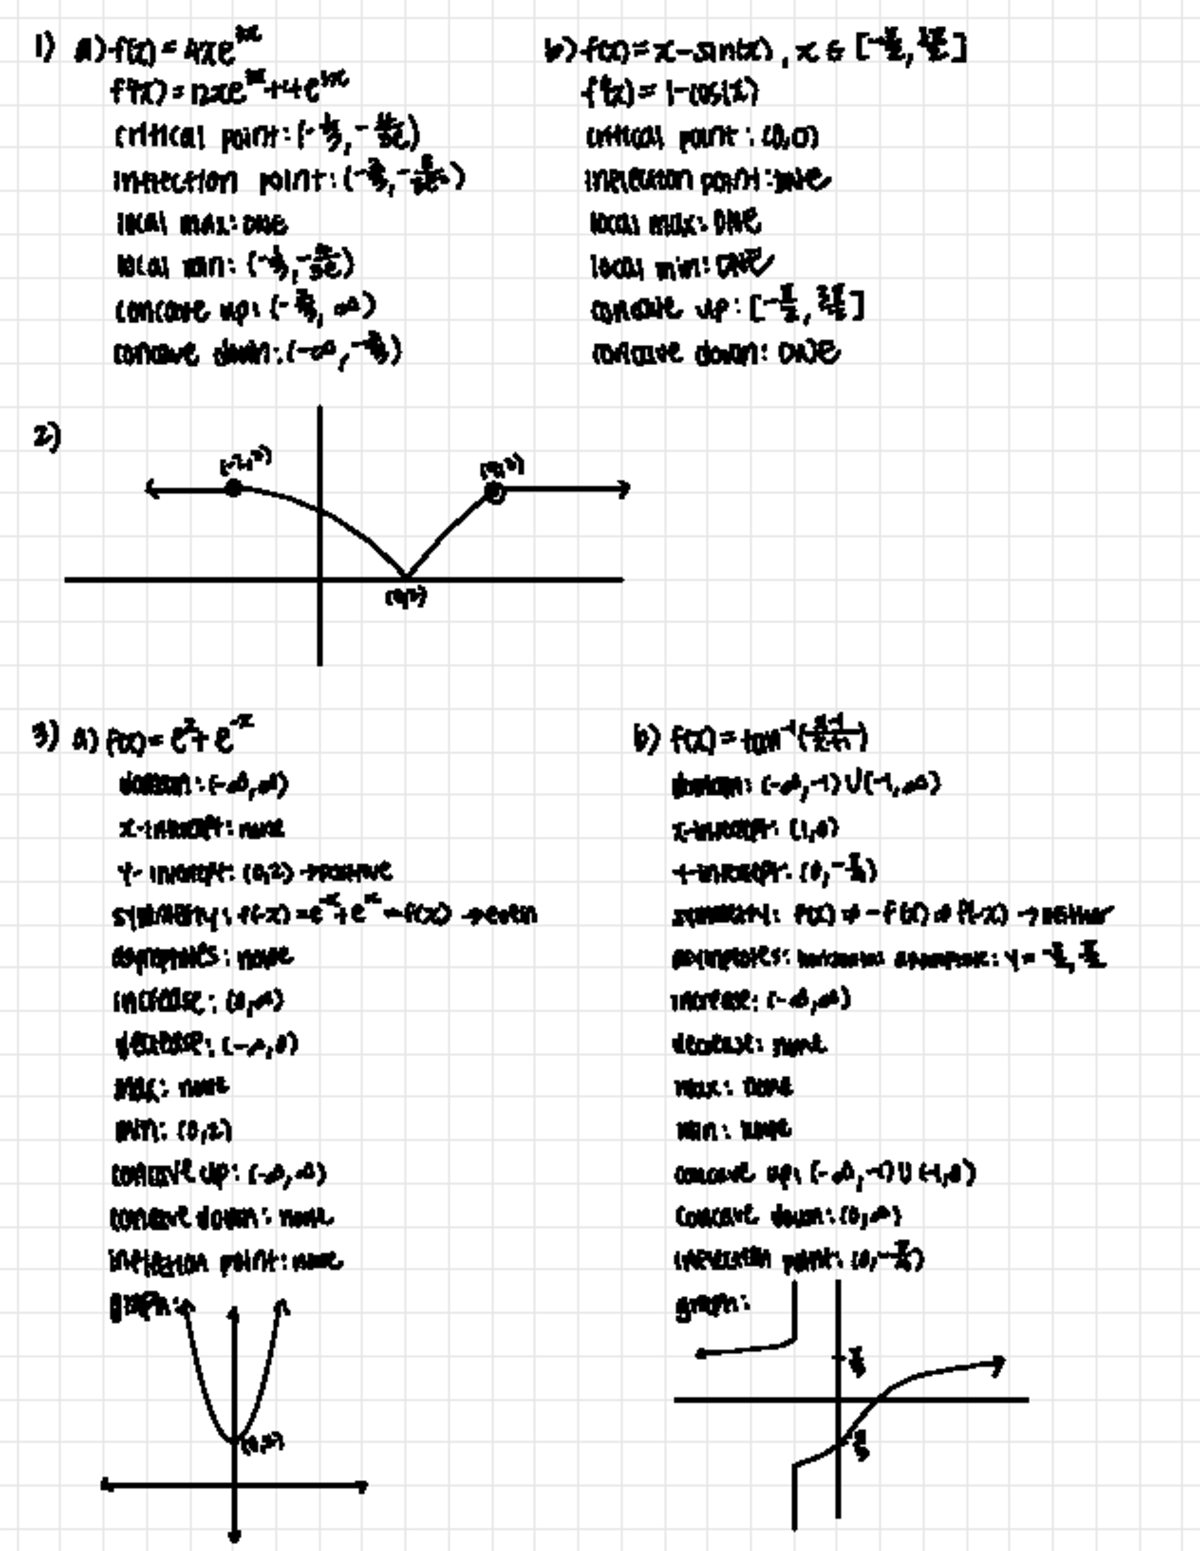 1) a) f(x) = 4xe^3x
f'(x) = 12xe^3x + 4e^3x
critical point: (-1/3, -4/3e)
inflection point: (-2/3, -8/3e²)
local max: DNE
local min: (-1/3, -4/3e)
concave up: (-2/3, ∞)
concave down: (-∞, -2/3)
b) f(x) = x - sin(x), x ∈ [-π/2, 3π/2]
f'(x) = 1 - cos(x)
critical point: (0,0)
inflection point: DNE
local max: DNE
local min: DNE
concave up: [-π/2, 3π/2]
concave down: DNE
2)
3) a) f(x) = e^x + e^-x
domain: (-∞, ∞)
x-intercept: none
y-intercept: (0,2) → positive
symmetry: f(-x) = e^-x + e^x = f(x) → even
asymptotes: none
increase: (0, ∞)
decrease: (-∞, 0)
max: none
min: (0,2)
concave up: (-∞, ∞)
concave down: none
inflection point: none
graph:
(0,2)
b) f(x) = tan⁻¹((x-1)/(x+1))
domain: (-∞, -1) ∪ (-1, ∞)
x-intercept: (1, 0)
y-intercept: (0, -π/4)
symmetry: f(x) ≠ -f(x) ≠ f(-x) → neither
asymptotes: horizontal asymptote: y =
increase: (-∞, ∞)
decrease: none
max: none
min: none
concave up: (-∞, -1) ∪ (-1, 0)
concave down: (0, ∞)
inflection point: (0, -π/4)
graph: